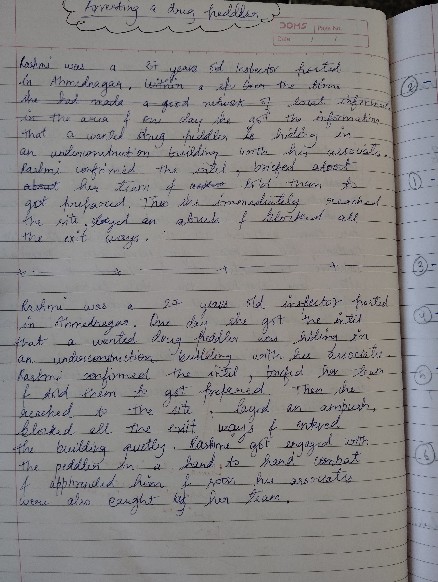 Arresting a drug peddler
DOMS Page No.
Date / /
Rashmi was a 27 years old inspector posted
in Ahmednagar. Within a short time
she had made a good network of local informers
in the area & one day she got the information
that a wanted drug peddler is hiding in
an underconstruction building with his associates.
Rashmi confirmed the intel, briefed about
about her team & told them to
got prepared. Then she immediately reached
the site, layed an abush & blocked all
the exit ways.
Rashmi was a 27 years old inspector posted
in Ahmednagar. One day she got the intel
that a wanted drug peddler was hiding in
an underconstruction building with his associates
Rashmi confirmed the intel, briefed her team
& told them to got prepared. Then she
reached to the site, layed an ambush,
blocked all the exit ways & entered
the building quetly. Rashmi got engaged with
the peddler in a hand to hand combat
& apprended him & soon his associates
were also caught by her team.
2
1
3
4
5
6